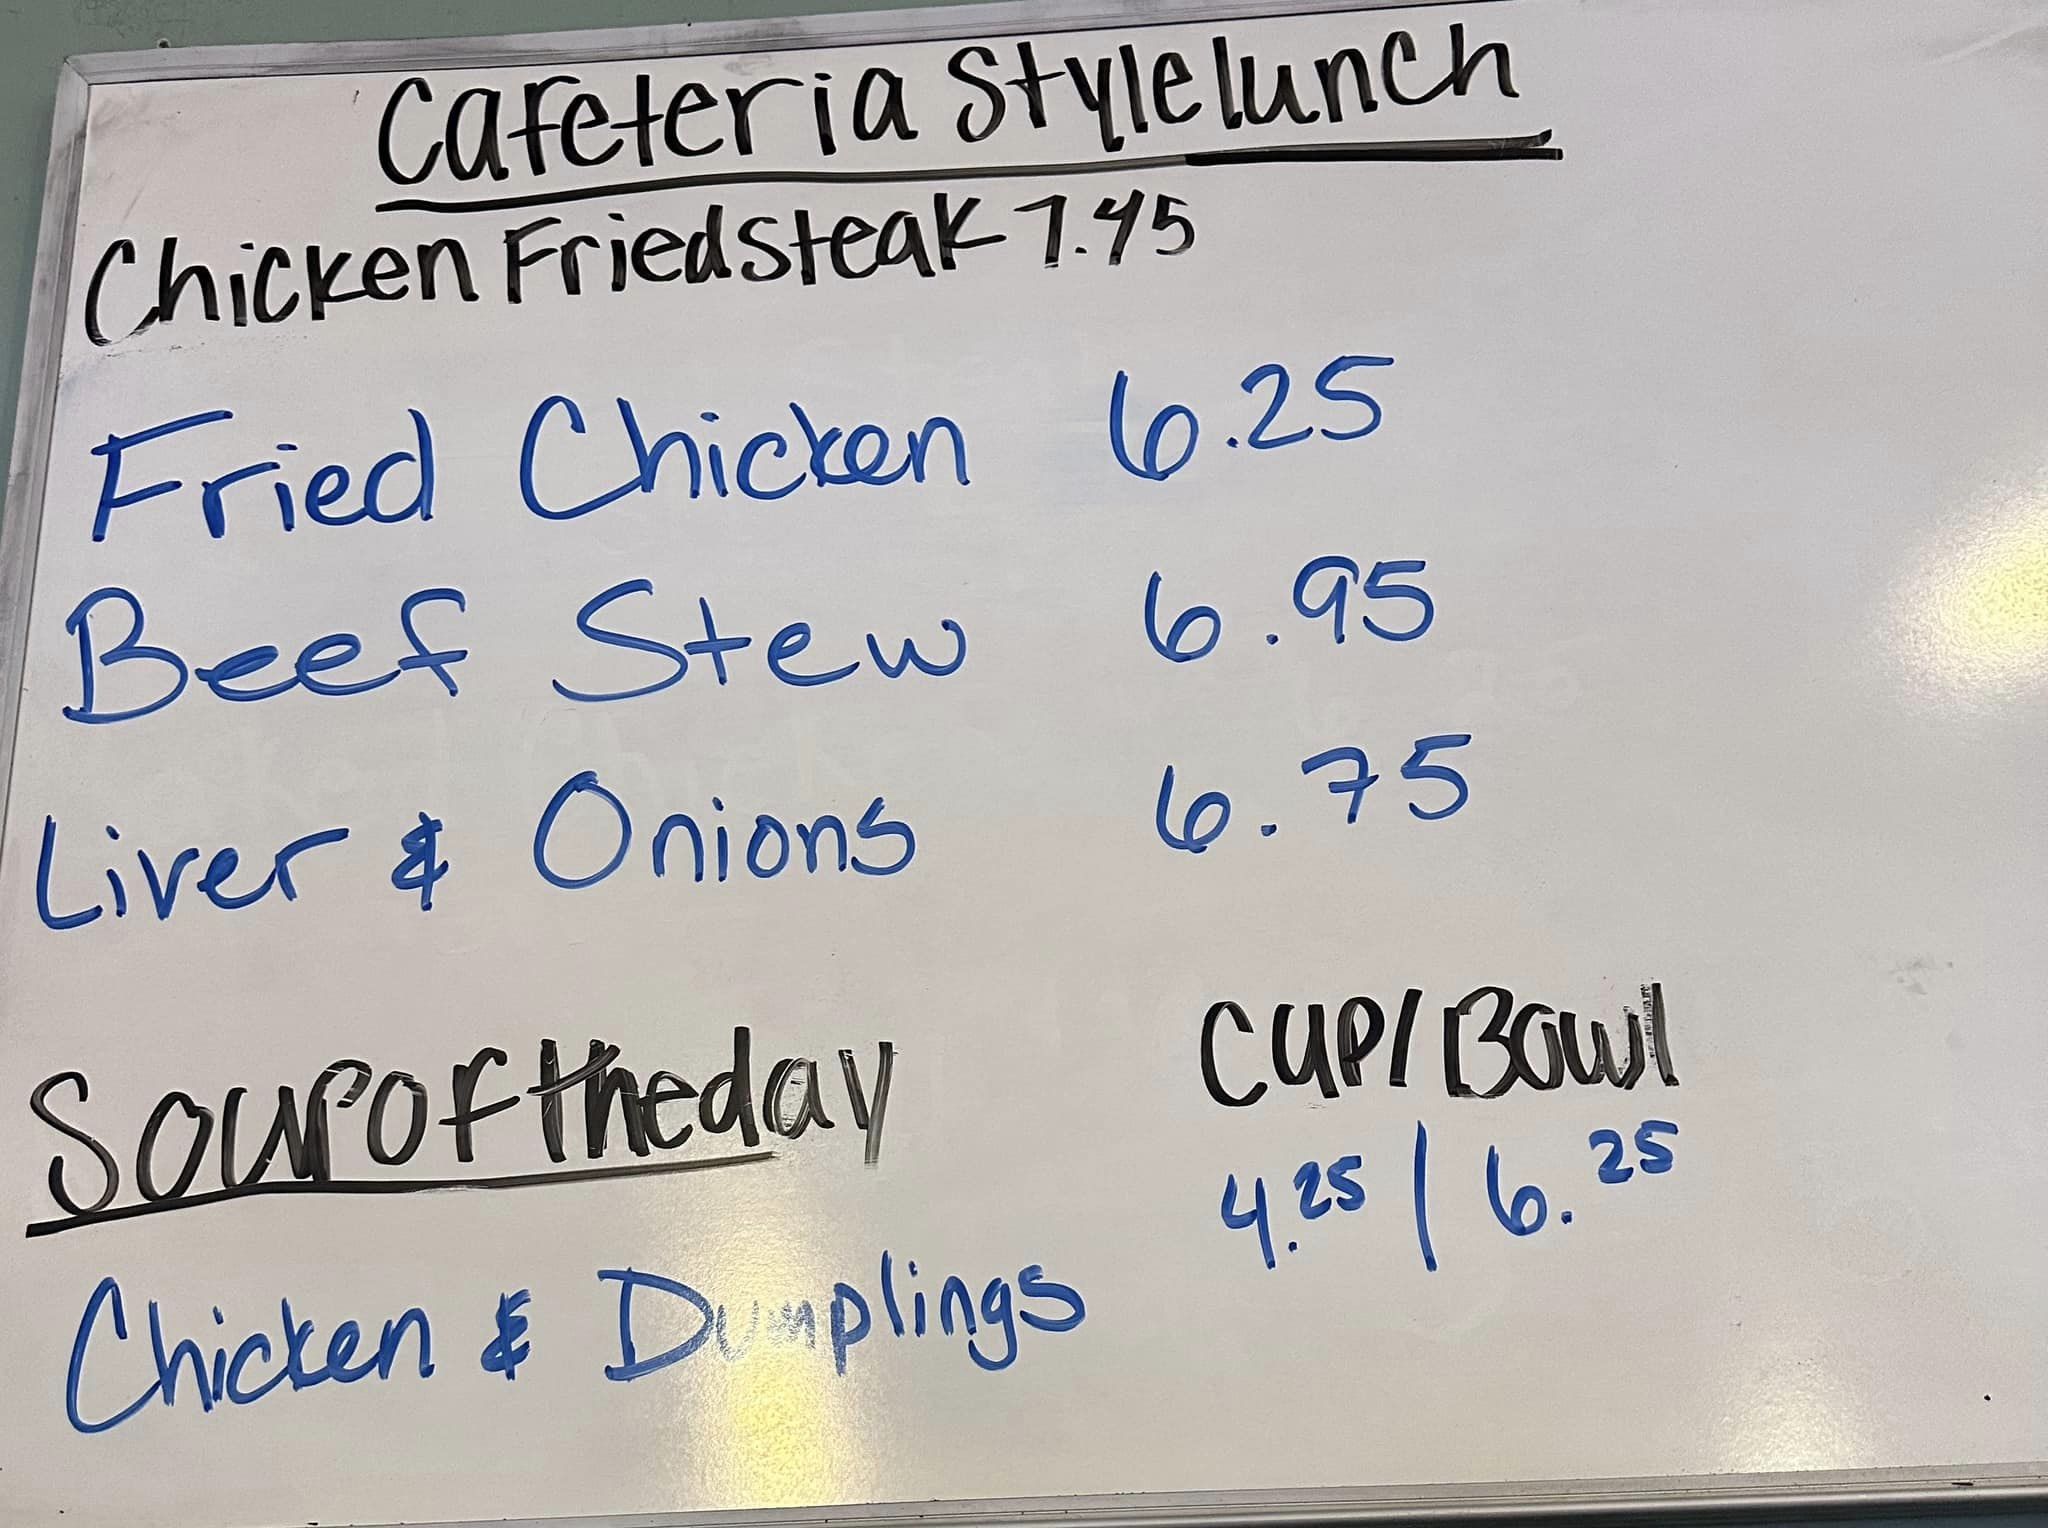 Cafeteria Style lunch
Chicken Fried steak 7.45
Fried Chicken 6.25
Beef Stew 6.95
Liver & Onions 6.75
Soup of the day
Cup/Bowl
4.25 / 6.25
Chicken & Dumplings